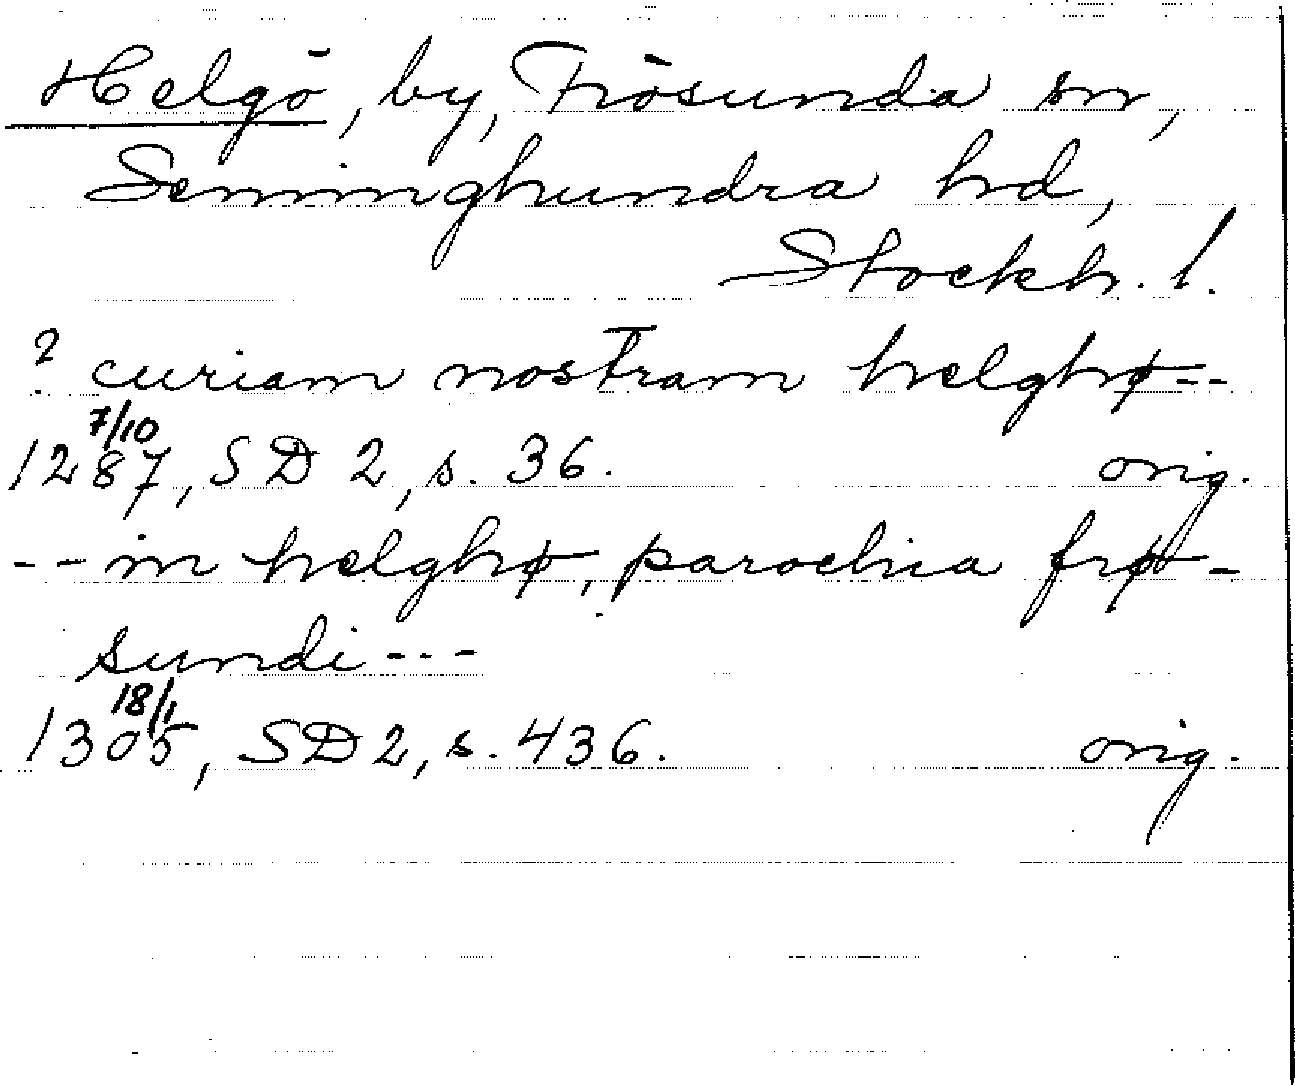 Helgö, by, Frösunda sn,
Seminghundra hd,
Stockh. l.
? curiam nostram helghø--
7/10
1287, SD 2, s. 36. orig.
-- in helghø, parochia frø-
sundi ---
18/1
1305, SD 2, s. 436. orig.